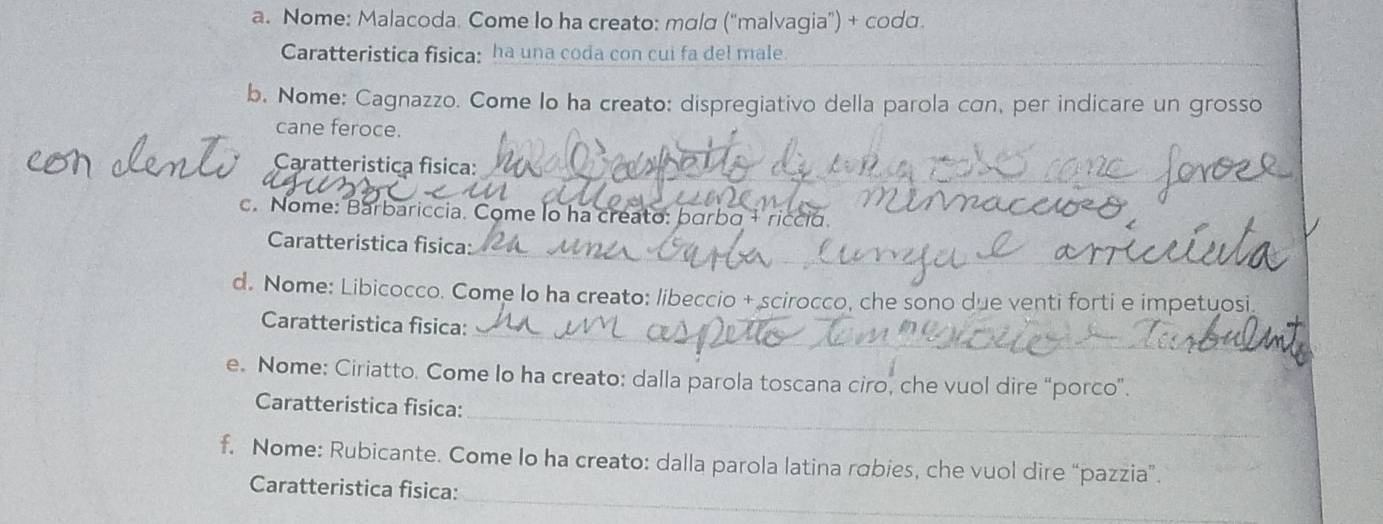 a. Nome: Malacoda. Come lo ha creato: mala (“malvagia”) + coda.
Caratteristica fisica: ha una coda con cui fa del male.
b. Nome: Cagnazzo. Come lo ha creato: dispregiativo della parola can, per indicare un grosso
cane feroce.
Caratteristica fisica: ha l'aspetto di cane feroce
con denti aguzzi e un atteggiamento minaccioso.
c. Nome: Barbariccia. Come lo ha creato: barba + riccia.
Caratteristica fisica: ha una barba lunga e arricciata
d. Nome: Libicocco. Come lo ha creato: libeccio + scirocco, che sono due venti forti e impetuosi.
Caratteristica fisica: ha un aspetto e turbulento
e. Nome: Ciriatto. Come lo ha creato: dalla parola toscana ciro, che vuol dire “porco”.
Caratteristica fisica:
f. Nome: Rubicante. Come lo ha creato: dalla parola latina rabies, che vuol dire “pazzia”.
Caratteristica fisica: